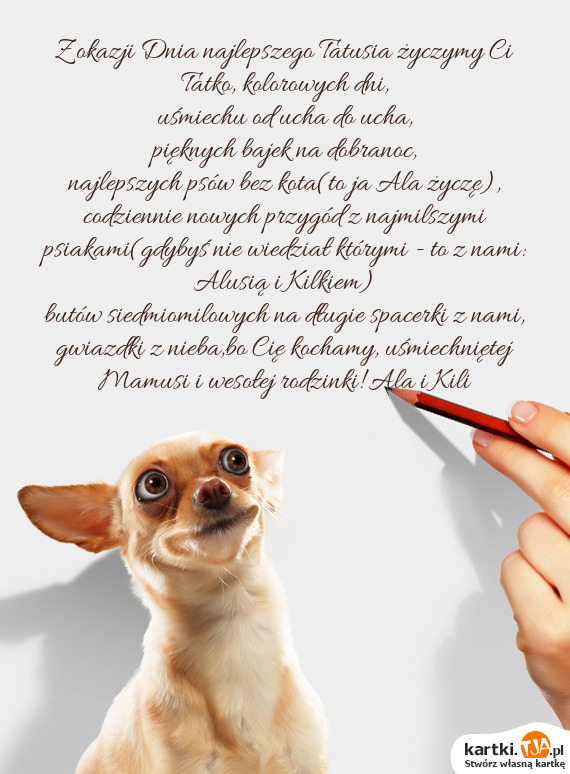 Z okazji Dnia najlepszego Tatusia życzymy Ci
Tatko, kolorowych dni,
uśmiechu od ucha do ucha,
pięknych bajek na dobranoc,
najlepszych psów bez kota( to ja Ala życzę) ,
codziennie nowych przygód z najmilszymi
psiakami( gdybyś nie wiedział którymi - to z nami:
Alusią i Kilkiem)
butów siedmiomilowych na długie spacerki z nami,
gwiazdki z nieba,bo Cię kochamy, uśmiechniętej
Mamusi i wesołej rodzinki! Ala i Kili
kartki.TJA.pl
Stwórz własną kartkę